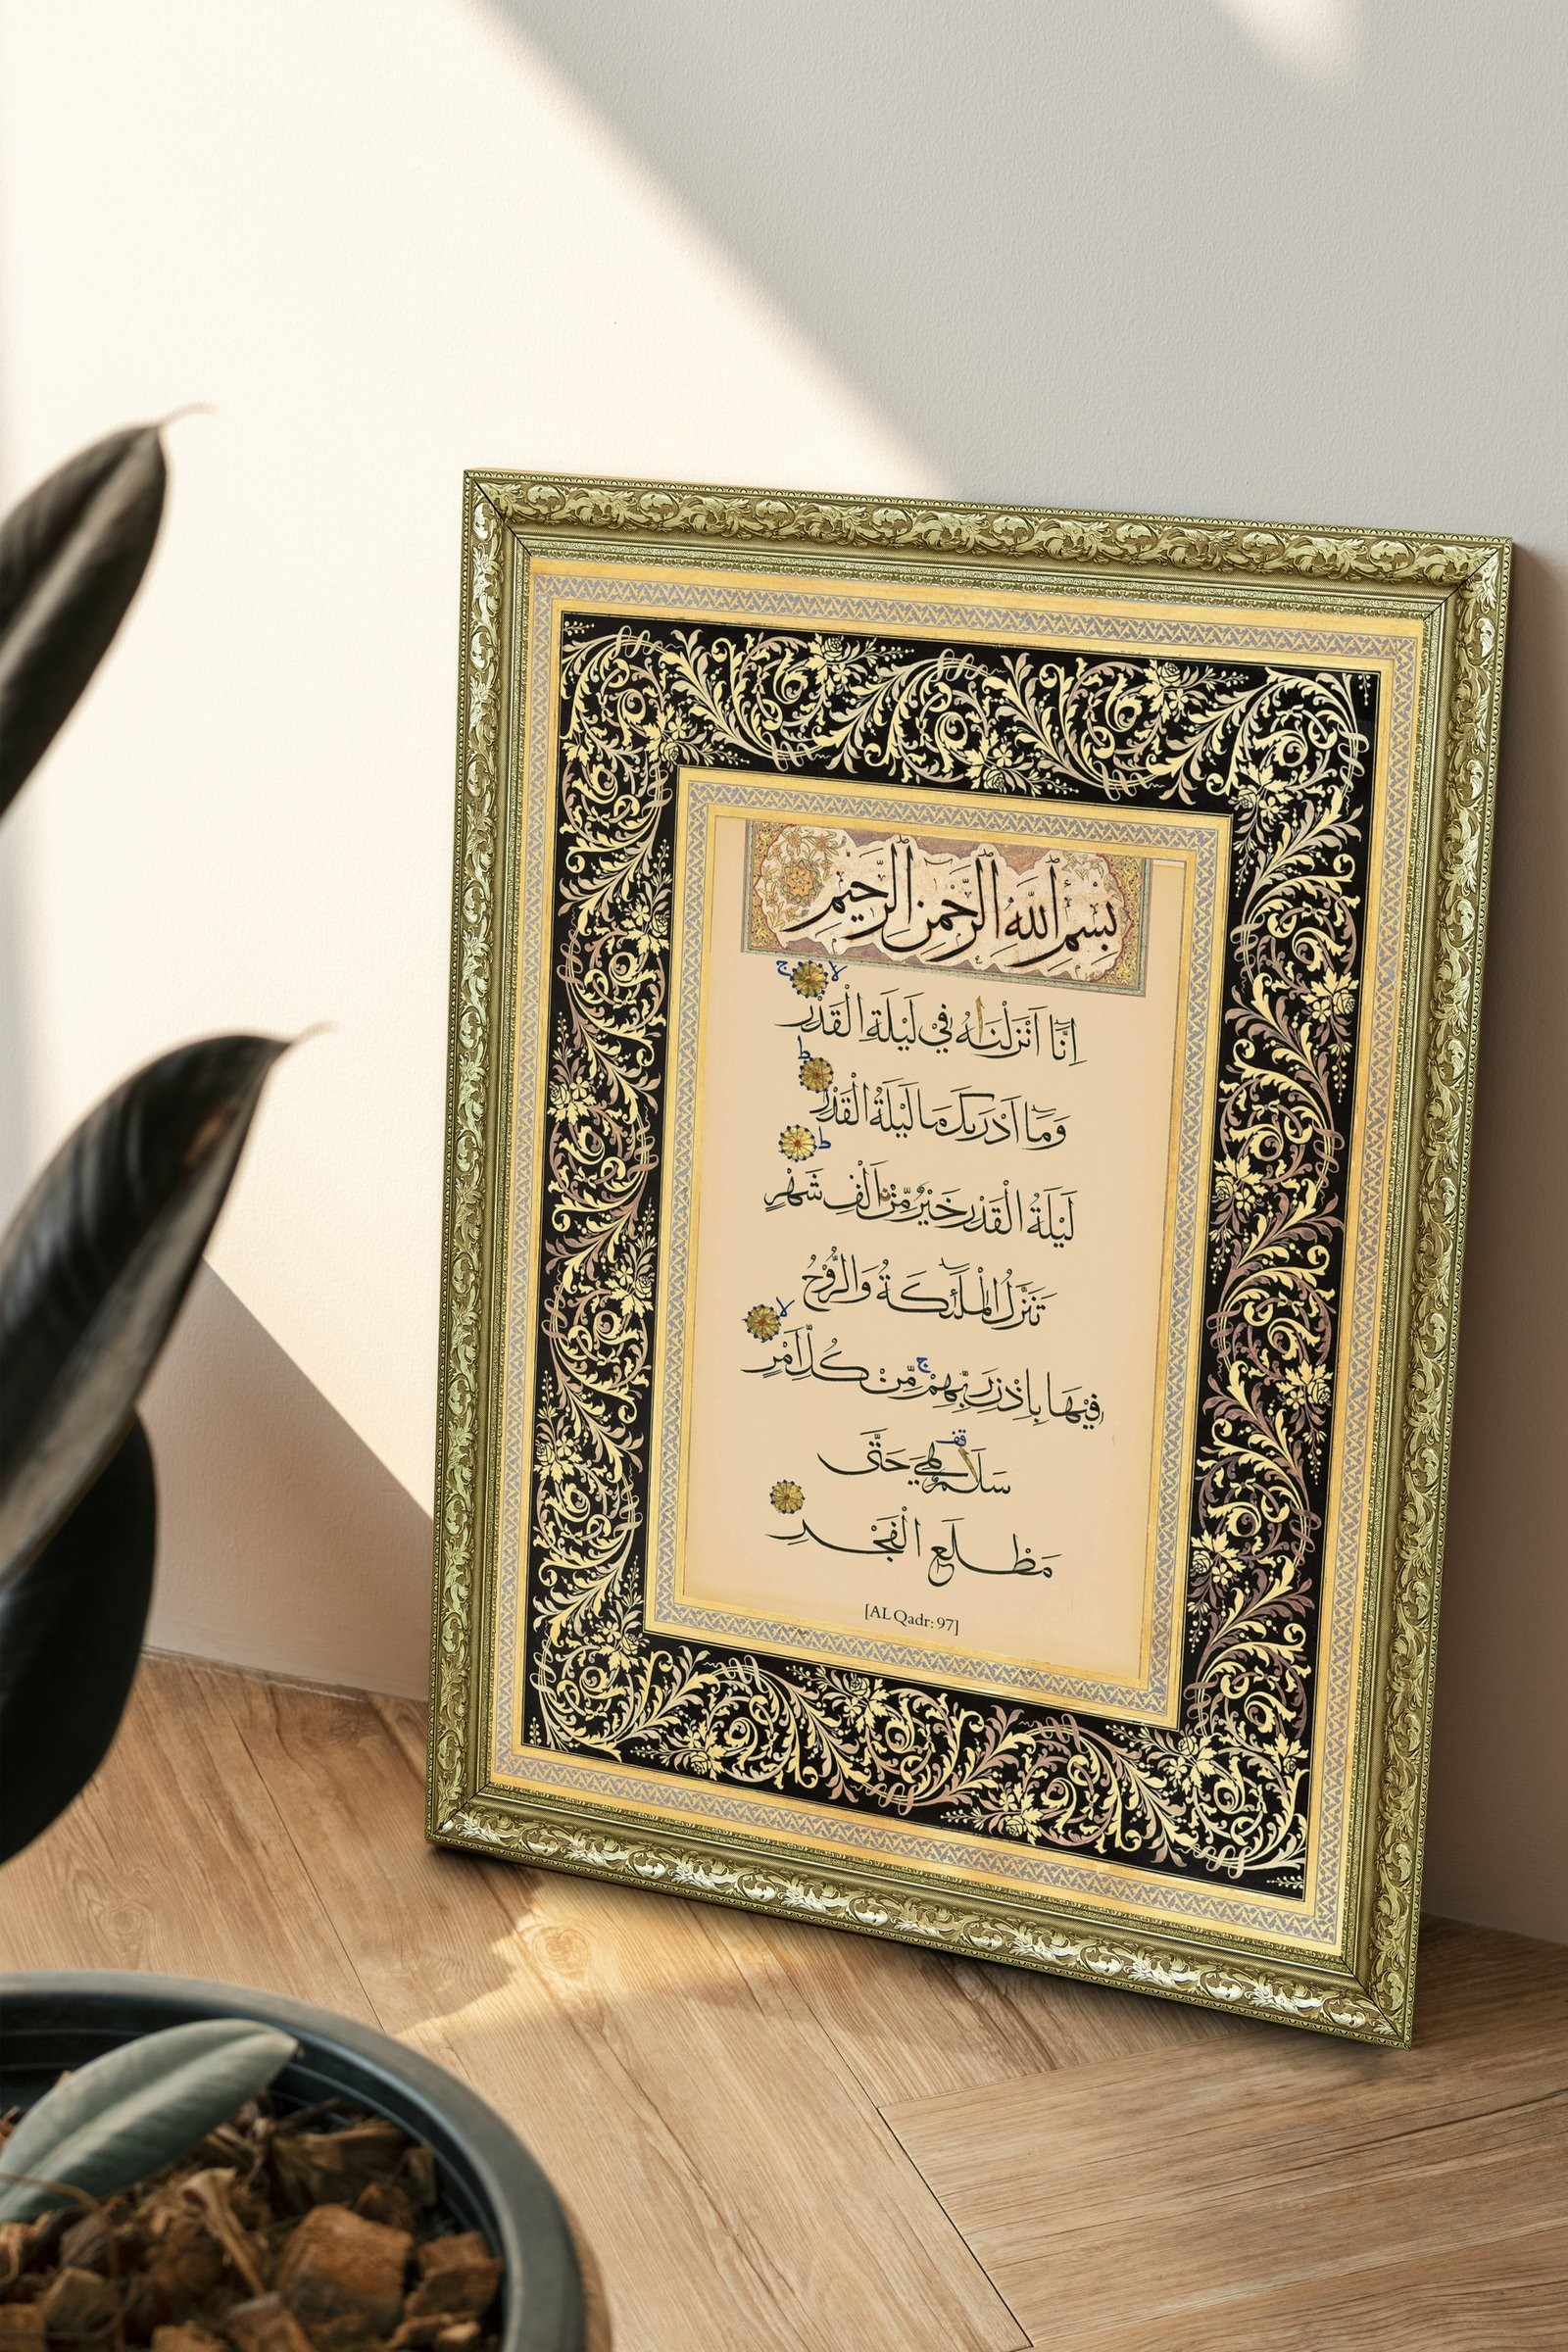 بِسْمِ ٱللَّهِ ٱلرَّحْمَٰنِ ٱلرَّحِيمِ
اِنَّاۤ اَنْزَلْنٰهُ فِيْ لَيْلَةِ الْقَدْرِ ۙۚ
وَمَاۤ اَدْرٰىكَ مَا لَيْلَةُ الْقَدْرِ ؕ
لَيْلَةُ الْقَدْرِ خَيْرٌ مِّنْ اَلْفِ شَهْرٍ ؕ
تَنَزَّلُ الْمَلٰٓئِكَةُ وَالرُّوْحُ
فِيْهَا بِاِذْنِ رَبِّهِمْ ۚ مِّنْ كُلِّ اَمْرٍ ۙ
سَلٰمٌ ۛ هِيَ حَتّٰى
مَطْلَعِ الْفَجْرِ
[AL Qadr: 97]